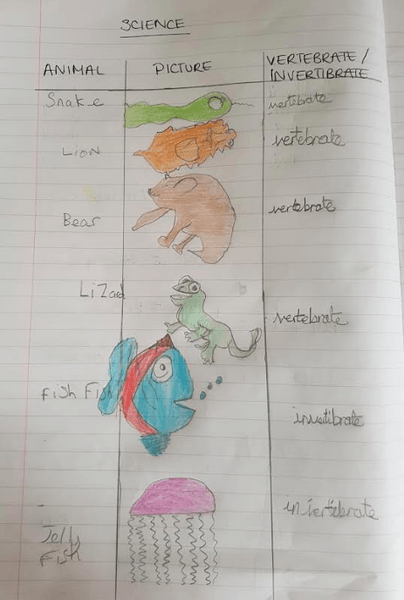 SCIENCE
ANIMAL PICTURE VERTEBRATE /
INVERTIBRATE
Snake vertibrate
Lion vertebrate
Bear vertebrate
Lizad
vertebrate
Fish Fish
invertibrate
invertebrate
Jelly
Fish